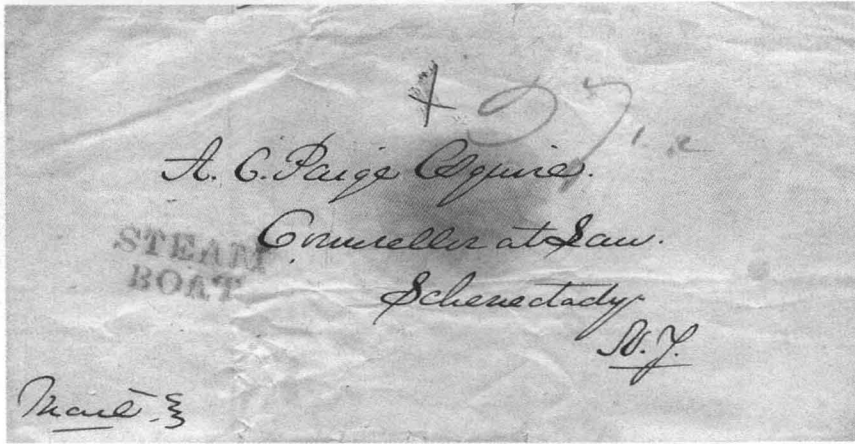 A. C. Paige Esquire.
Counsellor at Law.
STEAM
BOAT
Schenectady
N.Y.
Mail